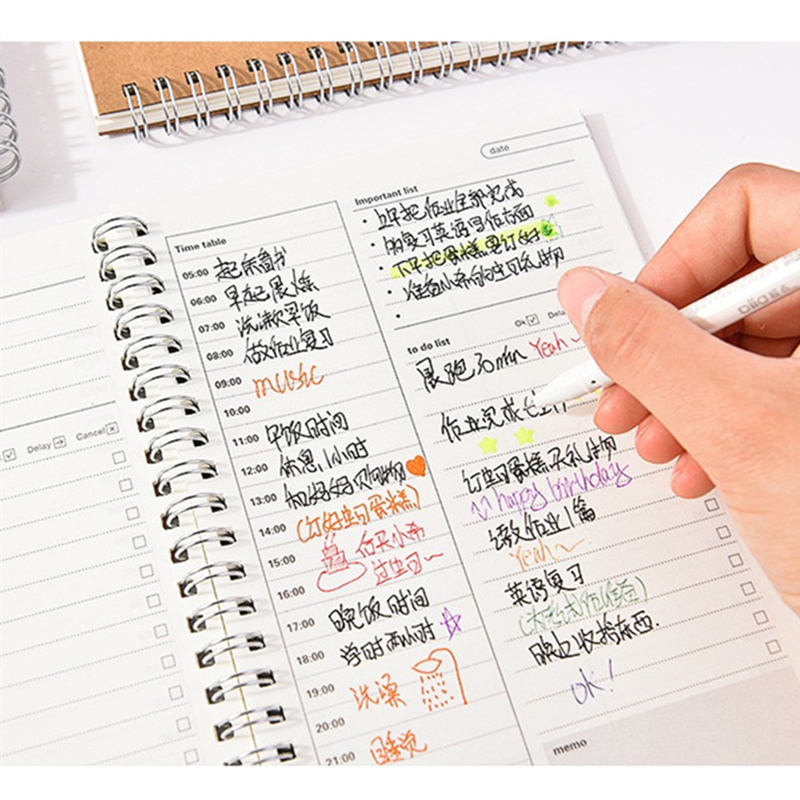 date
Important list
上午把作业全部完成
的复习英语写作方面
下午把蛋糕里订好
准备小希的生日礼物
Time table
05:00 起床看书
06:00 早起晨练
07:00 洗漱吃早饭
08:00 做作业复习
09:00 music
10:00
11:00 早饭时间
12:00 休息1小时
13:00 和好好买礼物
14:00 (订好生日蛋糕)
15:00 今天小希
过生日~
16:00
17:00 晚饭时间
18:00 学习两小时
19:00 洗澡
20:00
21:00 睡觉
Ok Dela
to do list
晨跑30min Yeah~
作业完成
订生日蛋糕买礼物
happy birthday
语文作业1篇
Yeah~
英语复习
晚上收拾东西.
ok!
memo
Delay Cancel